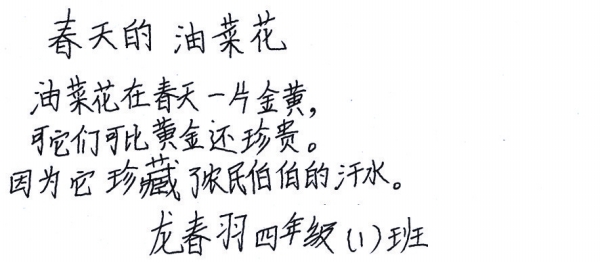 春天的 油菜花
油菜花在春天一片金黄,
可它们可比黄金还珍贵。
因为它珍藏了农民伯伯的汗水。
龙春羽四年级(1)班